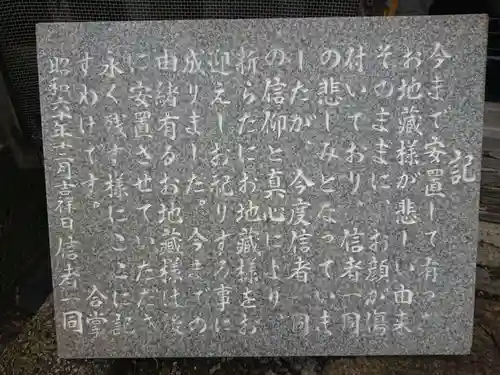 記
今まで安置して有った
お地蔵様が悲しい由来
そのままに、お顔が傷
付いており、信者一同
の悲しみとなっていま
したが、今度信者一同
の信仰と真心により、
新らたにお地蔵様をお
迎えしお祀りする事に
成りました。今までの
由緒有るお地蔵様は後
に安置させていただき
永く残す様にここに記
すわけです。 合掌
昭和六十年十二月吉祥日信者一同